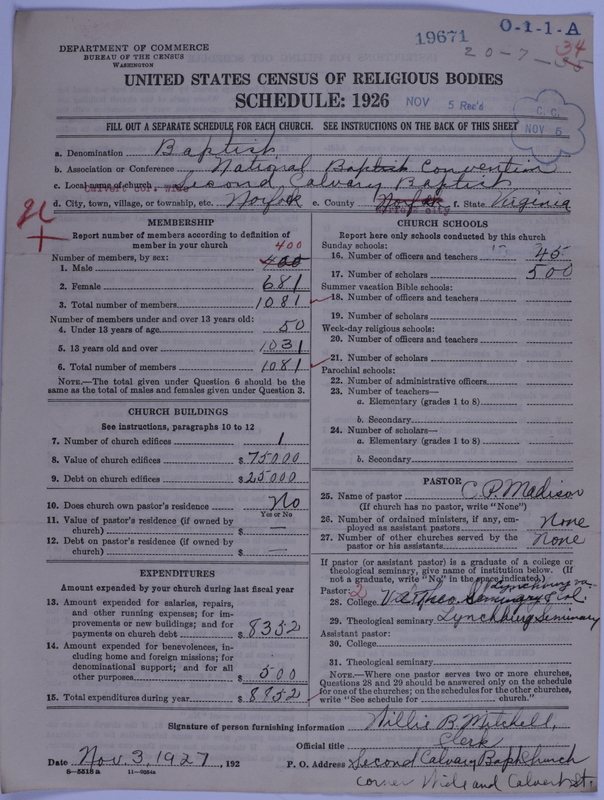 DEPARTMENT OF COMMERCE
BUREAU OF THE CENSUS
WASHINGTON
19671
O-1-1-A
20-7-35
34
UNITED STATES CENSUS OF RELIGIOUS BODIES
SCHEDULE: 1926
NOV 5 Rec'd
C. C.
NOV 6
FILL OUT A SEPARATE SCHEDULE FOR EACH CHURCH. SEE INSTRUCTIONS ON THE BACK OF THIS SHEET
a. Denomination Baptist
b. Association or Conference National Baptist Convention
c. Local name of church Second Calvary Baptist
Calvert cor. Wide
d. City, town, village, or township, etc. Norfolk e. County Norfolk f. State Virginia
MEMBERSHIP
Report number of members according to definition of
member in your church
400
Number of members, by sex:
1. Male 400
2. Female 681
3. Total number of members 1081
Number of members under and over 13 years old:
4. Under 13 years of age 50
5. 13 years old and over 1031
6. Total number of members 1081
NOTE.—The total given under Question 6 should be the
same as the total of males and females given under Question 3.
CHURCH BUILDINGS
See instructions, paragraphs 10 to 12
7. Number of church edifices 1
8. Value of church edifices $75000
9. Debt on church edifices $25000
10. Does church own pastor's residence? No
Yes or No
11. Value of pastor's residence (if owned by
church) $ —
12. Debt on pastor's residence (if owned by
church) $ —
EXPENDITURES
Amount expended by your church during last fiscal year
13. Amount expended for salaries, repairs,
and other running expenses; for im-
provements or new buildings; and for
payments on church debt $8352
14. Amount expended for benevolences, in-
cluding home and foreign missions; for
denominational support; and for all
other purposes $500
15. Total expenditures during year $8852
CHURCH SCHOOLS
Report here only schools conducted by this church
Sunday schools:
16. Number of officers and teachers 45
17. Number of scholars 500
Summer vacation Bible schools:
18. Number of officers and teachers
19. Number of scholars
Week-day religious schools:
20. Number of officers and teachers
21. Number of scholars
Parochial schools:
22. Number of administrative officers
23. Number of teachers—
a. Elementary (grades 1 to 8)
b. Secondary
24. Number of scholars—
a. Elementary (grades 1 to 8)
b. Secondary
PASTOR
25. Name of pastor C. P. Madison
(If church has no pastor, write "None")
26. Number of ordained ministers, if any, em-
ployed as assistant pastors None
27. Number of other churches served by the
pastor or his assistants None
If pastor (or assistant pastor) is a graduate of a college or
theological seminary, give name of institution below. (If
not a graduate, write "No" in the space indicated.)
Pastor: 2 Lynchburg Va.
28. College Va Theo. Seminary & Col.
29. Theological seminary Lynchburg Seminary
Assistant pastor:
30. College
31. Theological seminary
NOTE.—Where one pastor serves two or more churches,
Questions 28 and 29 should be answered only on the schedule
for one of the churches; on the schedules for the other churches,
write "See schedule for church."
Signature of person furnishing information Willis B. Mitchell,
Official title Clerk
Date Nov. 3, 1927, 192 P. O. Address Second Calvary Bapt Church
8—5518 a 11—9054a
corner Wide and Calvert St.